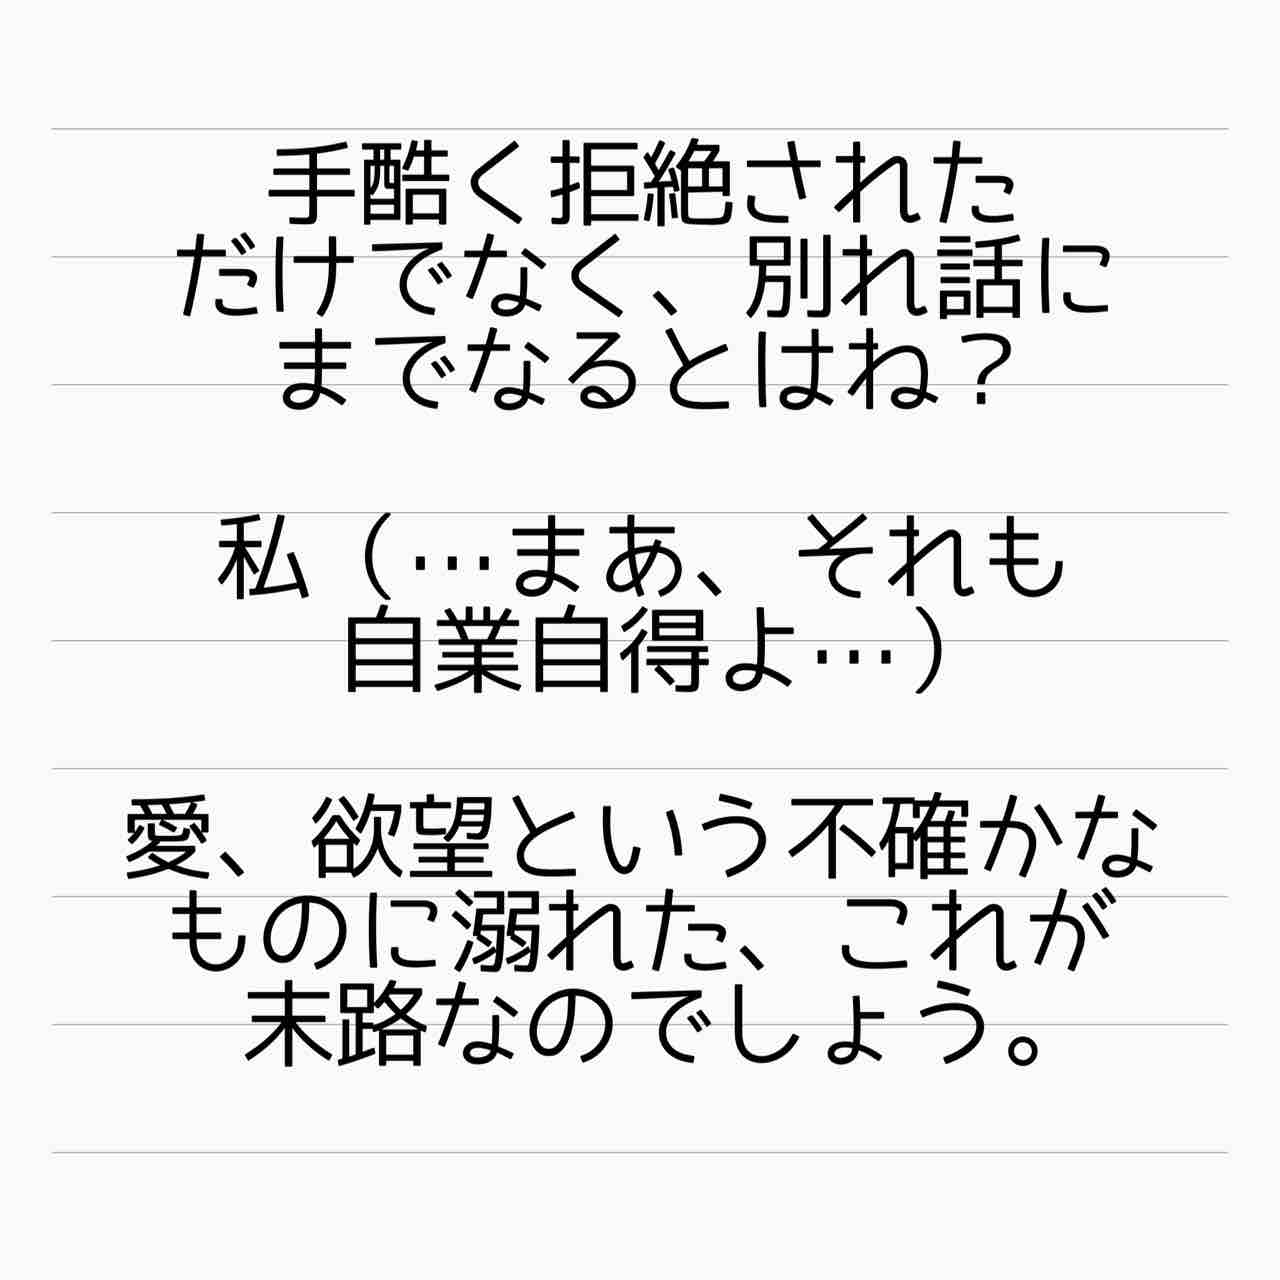 手酷く拒絶された
だけでなく、別れ話に
までなるとはね？
私（…まあ、それも
自業自得よ…）
愛、欲望という不確かな
ものに溺れた、これが
末路なのでしょう。